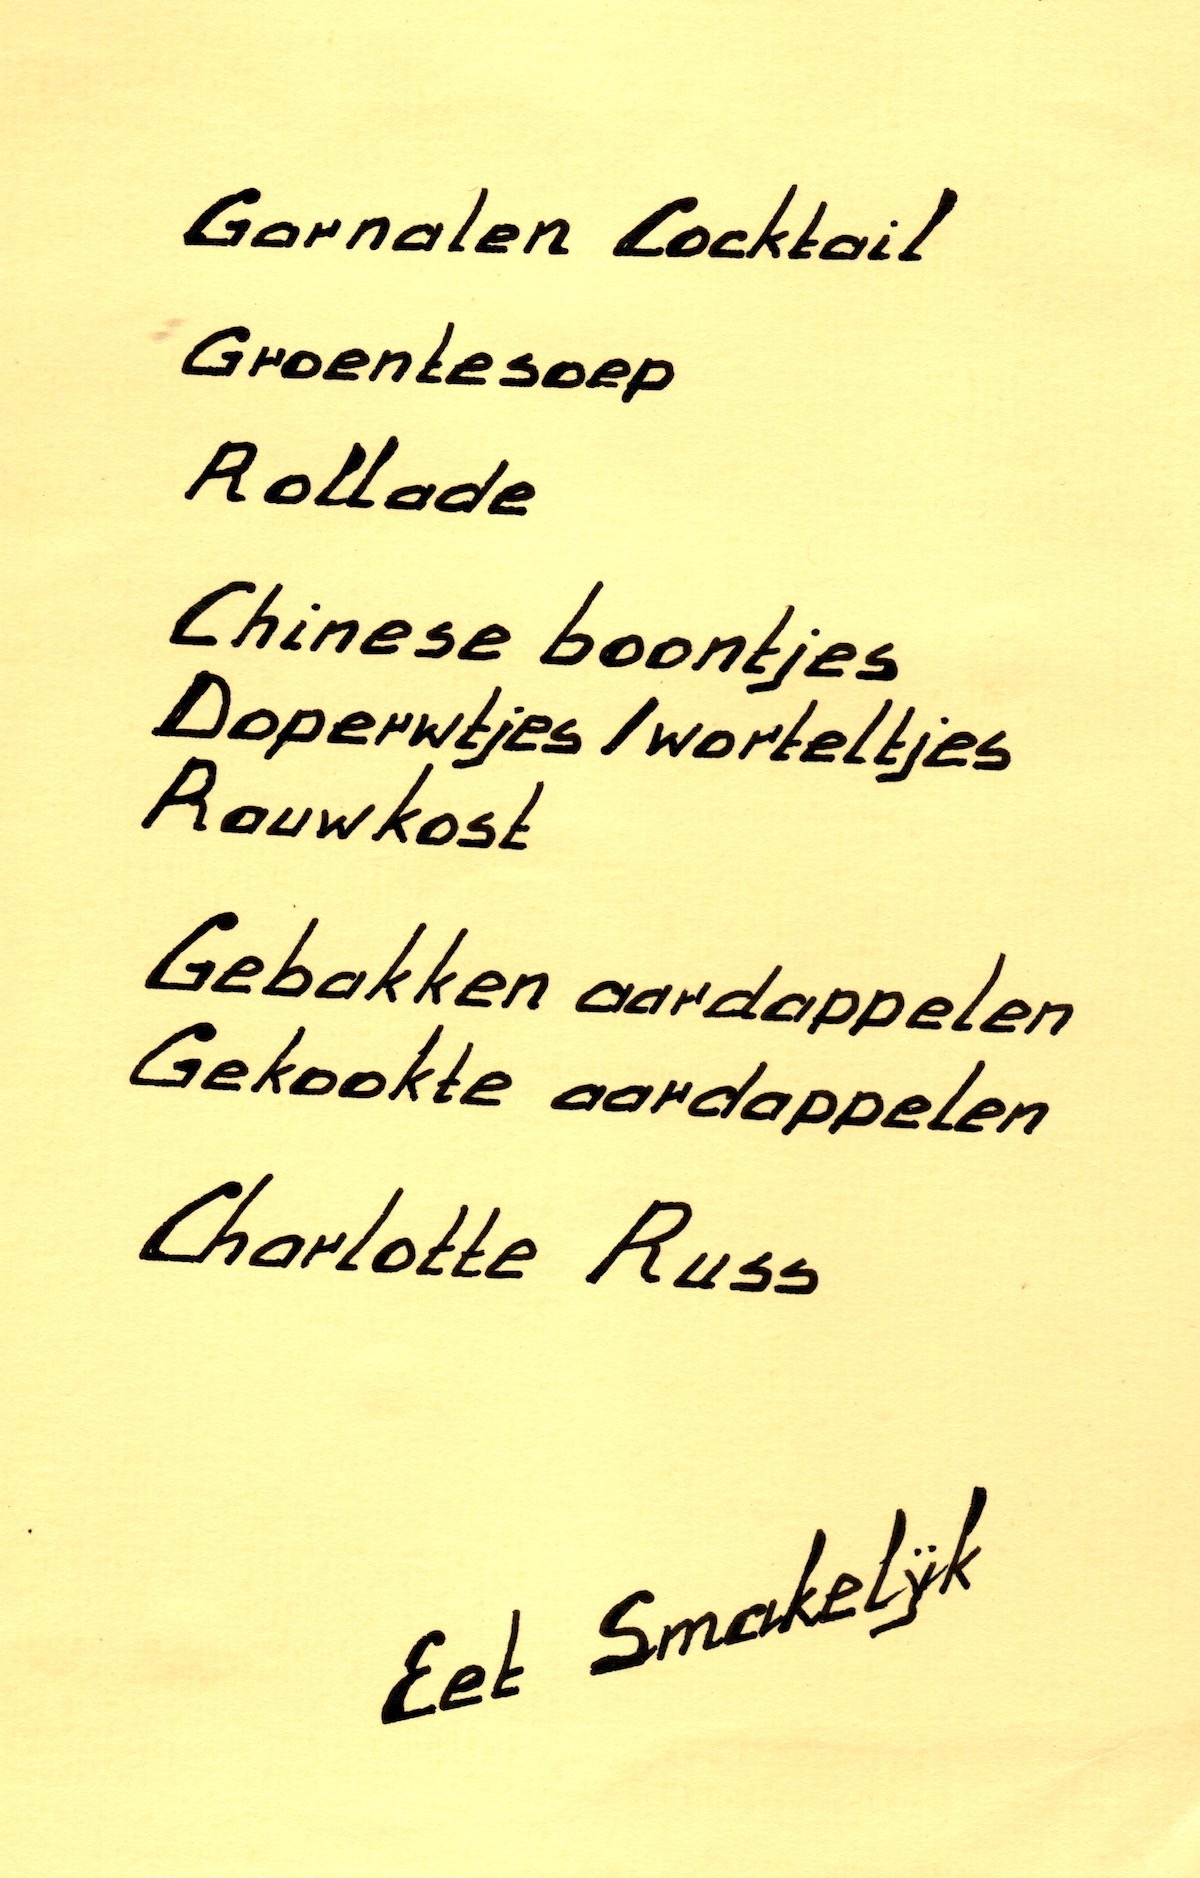 Garnalen Cocktail
Groentesoep
Rollade
Chinese boontjes
Doperwtjes / worteltjes
Rauwkost
Gebakken aardappelen
Gekookte aardappelen
Charlotte Russ
Eet Smakelijk